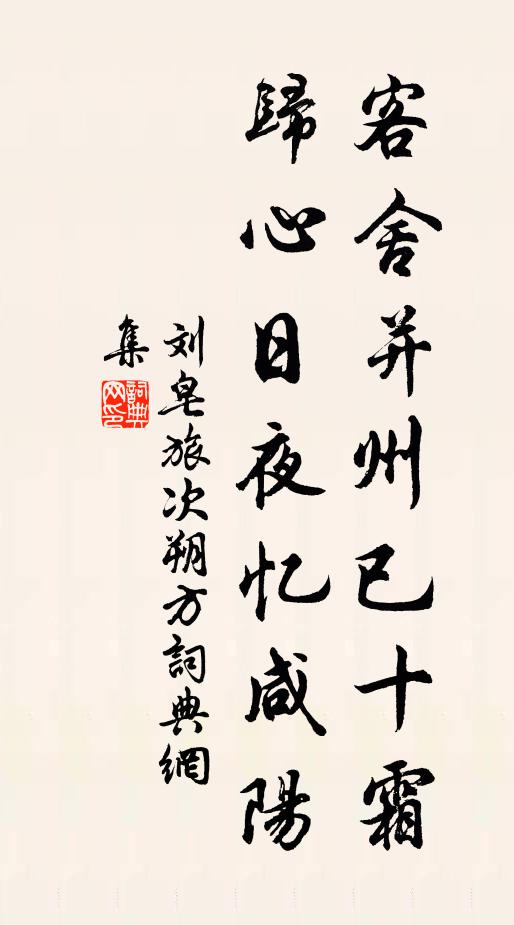 客舍并州已十霜
歸心日夜忆咸陽
刘皂旅次朔方詞典網
集
詞典网印